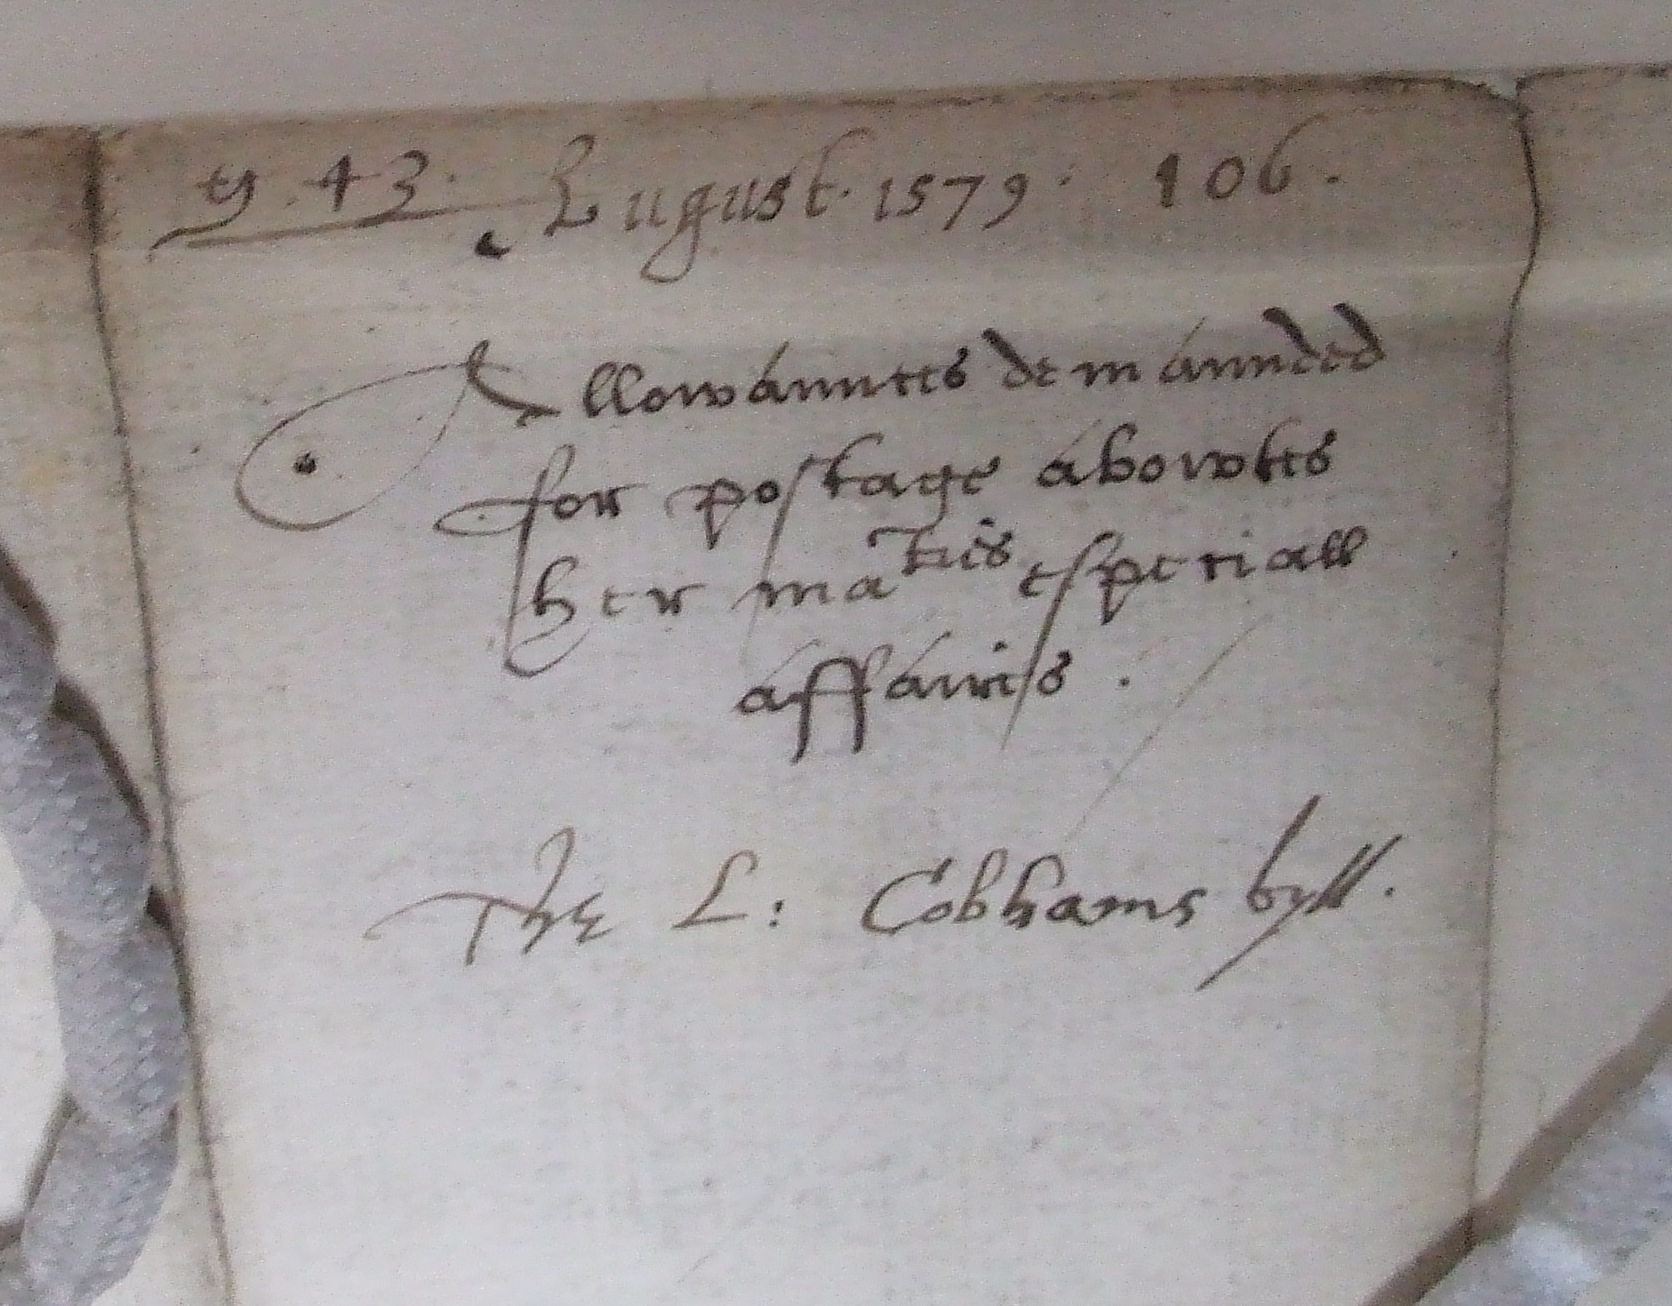 43. August. 1579. 106.
Allowanntes demannded
for postage abowtes
her maties especiall
affaires.
The L: Cobhams byll.